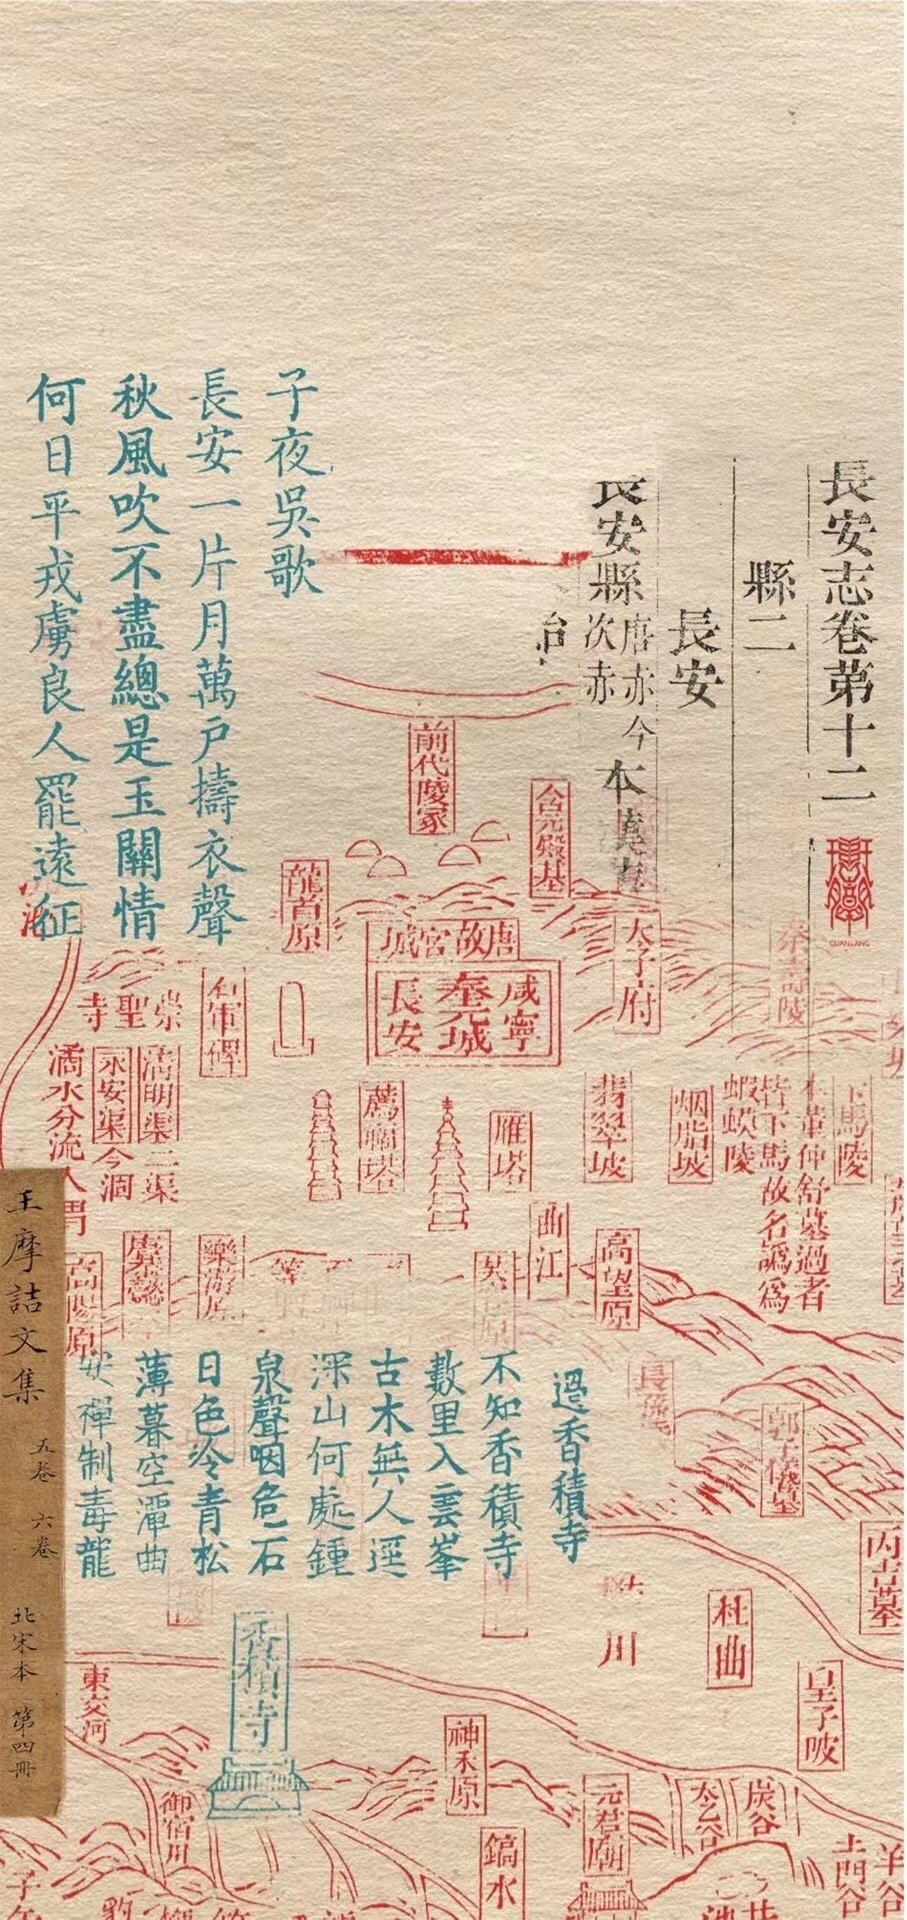 長安志卷第十二
縣二
長安
長安縣
唐赤今
次赤
本
治
GUANLANG
子夜吳歌
長安一片月萬戶擣衣聲
秋風吹不盡總是玉關情
何日平戎虜良人罷遠征
前代陵冢
含元殿基
龍首原
唐故宮城
咸寧
奉元城
長安
太子府
秦壽陵
崇聖寺
滈水分流入渭
永安渠今涸
清明渠二渠
薦福塔
雁塔
翡翠坡
烟脂坡
下馬陵
本董仲舒墓過者
皆下馬故名譌爲
蝦蟆陵
曲江
高望原
樂游原
高陽原
王摩詰文集
五卷
六卷
北宋本
第四冊
過香積寺
不知香積寺
數里入雲峯
古木無人逕
深山何處鍾
泉聲咽危石
日色冷青松
薄暮空潭曲
安禪制毒龍
香積寺
郭子儀墓
丙吉墓
川
杜曲
皇子陂
東交河
神禾原
御宿川
元君廟
太乙谷
炭谷
鎬水
土門谷
羊谷
子午